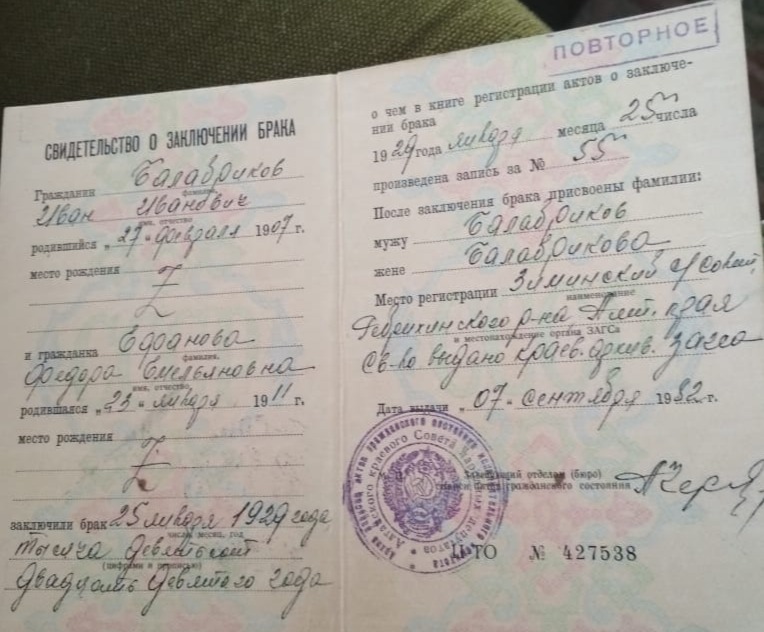 СВИДЕТЕЛЬСТВО О ЗАКЛЮЧЕНИИ БРАКА
Гражданин Балабриков
фамилия,
Иван Иванович
имя, отчество
родившийся „27“ февраля 1907 г.
место рождения Z
Z
и гражданка
фамилия,
Федора Емельяновна
имя, отчество
родившаяся „23“ января 1911 г.
место рождения Z
Z
заключили брак 25 января 1929 года
число, месяц, год
тысяча девятьсот
(цифрами и прописью)
двадцать девятого года
ПОВТОРНОЕ
о чем в книге регистрации актов о заключе-
нии брака
1929 года января месяца 25 числа
произведена запись за № 55
После заключения брака присвоены фамилии:
мужу Балабриков
жене Балабрикова
Место регистрации Зиминский
наименование
Ребрихинского р-на Алт. края
и местонахождение органа ЗАГСа
Св-во выдано краев. архив. загса
Дата выдачи „07“ сентября 1982 г.
Заведующий отделом (бюро)
записи актов гражданского состояния
II-ТО № 427538